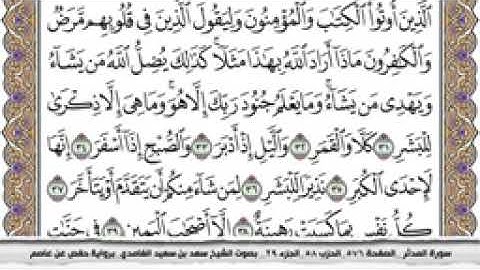 الَّذِينَ أُوتُوا۟ الْكِتَٰبَ وَالْمُؤْمِنُونَ وَلِيَقُولَ الَّذِينَ فِى قُلُوبِهِم مَّرَضٌ
وَالْكَٰفِرُونَ مَاذَآ أَرَادَ اللَّهُ بِهَٰذَا مَثَلًا ۚ كَذَٰلِكَ يُضِلُّ اللَّهُ مَن يَشَآءُ
وَيَهْدِى مَن يَشَآءُ ۚ وَمَا يَعْلَمُ جُنُودَ رَبِّكَ إِلَّا هُوَ ۚ وَمَا هِىَ إِلَّا ذِكْرَىٰ
لِلْبَشَرِ ٣١ كَلَّا وَالْقَمَرِ ٣٢ وَالَّيْلِ إِذْ أَدْبَرَ ٣٣ وَالصُّبْحِ إِذَآ أَسْفَرَ ٣٤ إِنَّهَا
لَإِحْدَى الْكُبَرِ ٣٥ نَذِيرًا لِّلْبَشَرِ ٣٦ لِمَن شَآءَ مِنكُمْ أَن يَتَقَدَّمَ أَوْ يَتَأَخَّرَ ٣٧
كُلُّ نَفْسٍۭ بِمَا كَسَبَتْ رَهِينَةٌ ٣٨ إِلَّآ أَصْحَٰبَ الْيَمِينِ ٣٩ فِى جَنَّٰتٍ
سورة المدثر _الصفحة ٥٧٦ _الحزب ٥٨ _الجزء ٢٩ _ بصوت الشيخ سعد بن سعيد الغامدي _برواية حفص عن عاصم